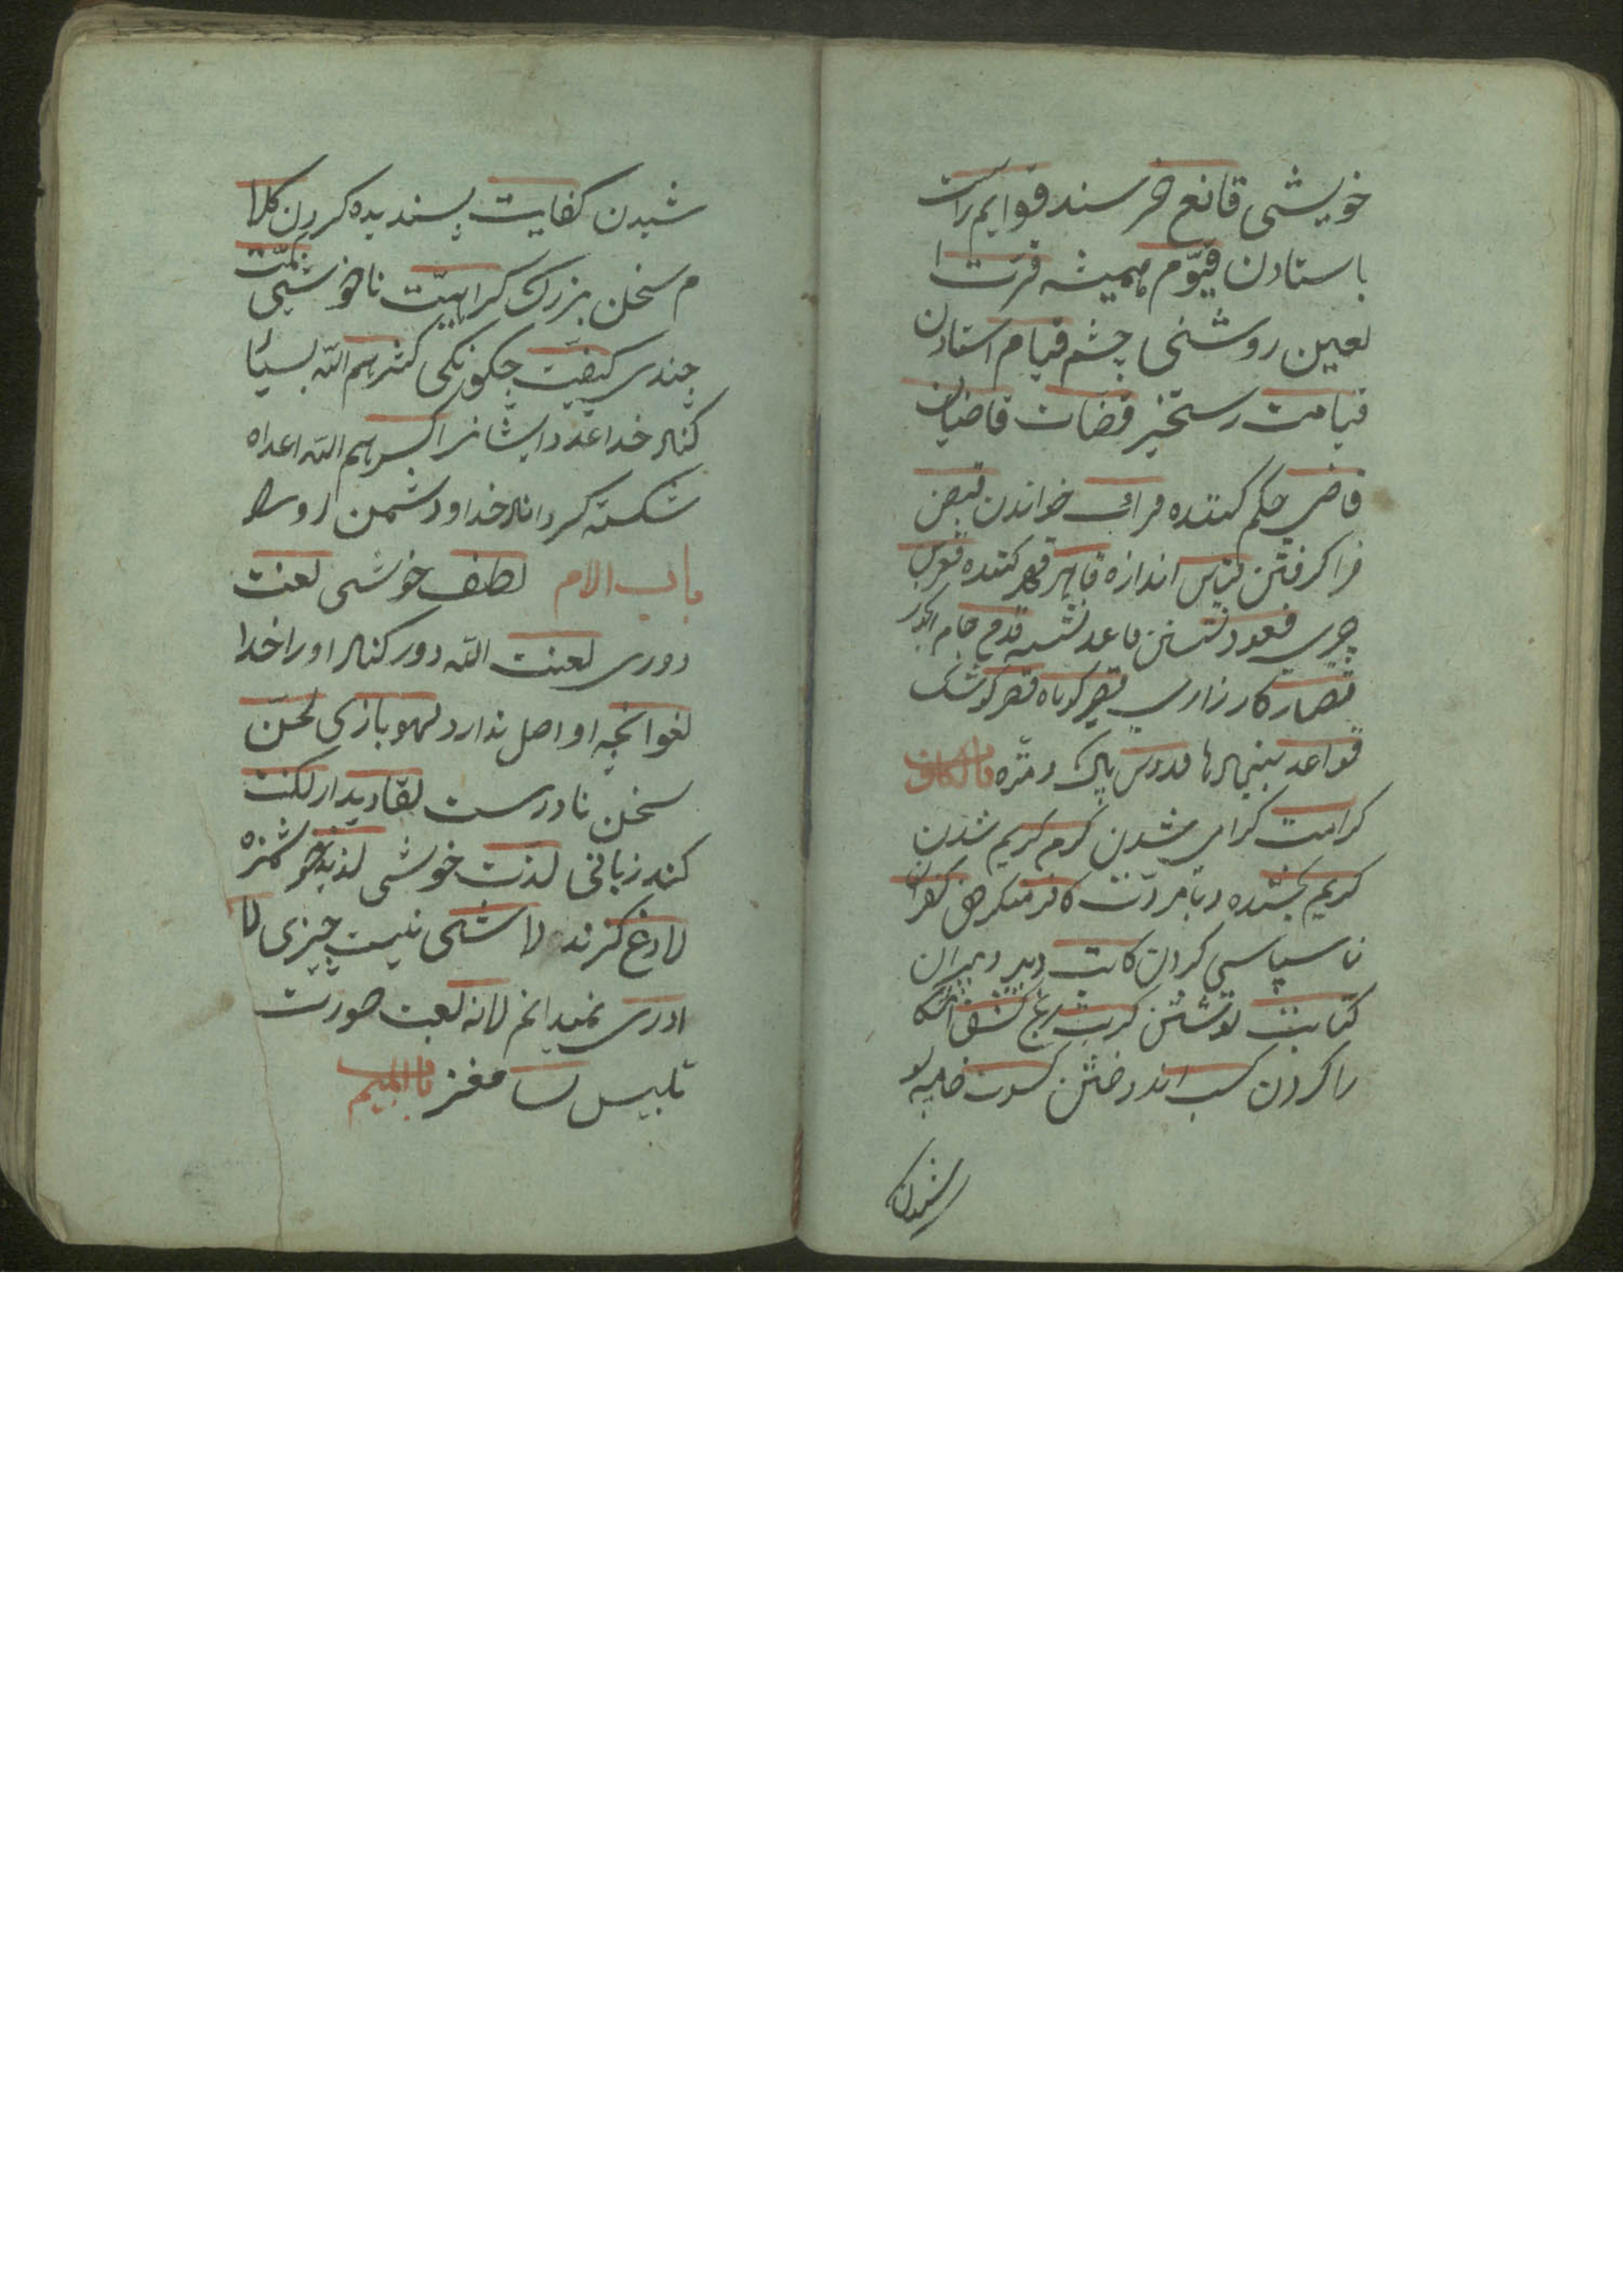 خویشی قانع خرسند قوایم راست
باستادن قیّوم همیشه قرّت ا
لعین روشنی چشم قیام استادن
قیامت رستخیز قضات قاضیان
قاضی حکم کننده قرائت خواندن قبض
فرا گرفتن قیاس اندازه قاهر قهر کننده
چرب قعود نشستن قاعد نشسته قدح جام
قصار کارزاری قصیر کوتاه قصر کوشک
قواعد بنیادها قدوس پاک و منزه باب الکاف
کرامت کرامی شدن کرم کریم شدن
کریم بخشنده و بامروّت کافر منکر حق کفران
ناسپاسی کردن کاتب دبیر دبیران
کتابت نوشتن کربت رنج کشف اشکا
را کردن کسب اندوختن کسوت جامه پو
شیدن
شیدن کفایت بسندیده کردن کلا
م سخن بزرک کراهیّت ناخوشی کمیّت
چندی کیفیّت چکونکی کثرهم الله بسیا
کناد خداعدد ایشانرا کسرهم الله اعداه
شکسته کرداناد خداو دشمن اورا
باب الام لطف خوشی لعنت
دوری لعنت الله دور کناد اورا خدا
لغو انچه او اصل ندارد لهو بازی لحن
سخن نادرست لقا دیدار لکنت
کند زبانی لذت خوشی لذیذ خوشمزه
لادغ کزنده لا شی نیست چیزی لا
ادری نمیدانم لانه لعبت صورت
تلبیس لب مغز باب المیم